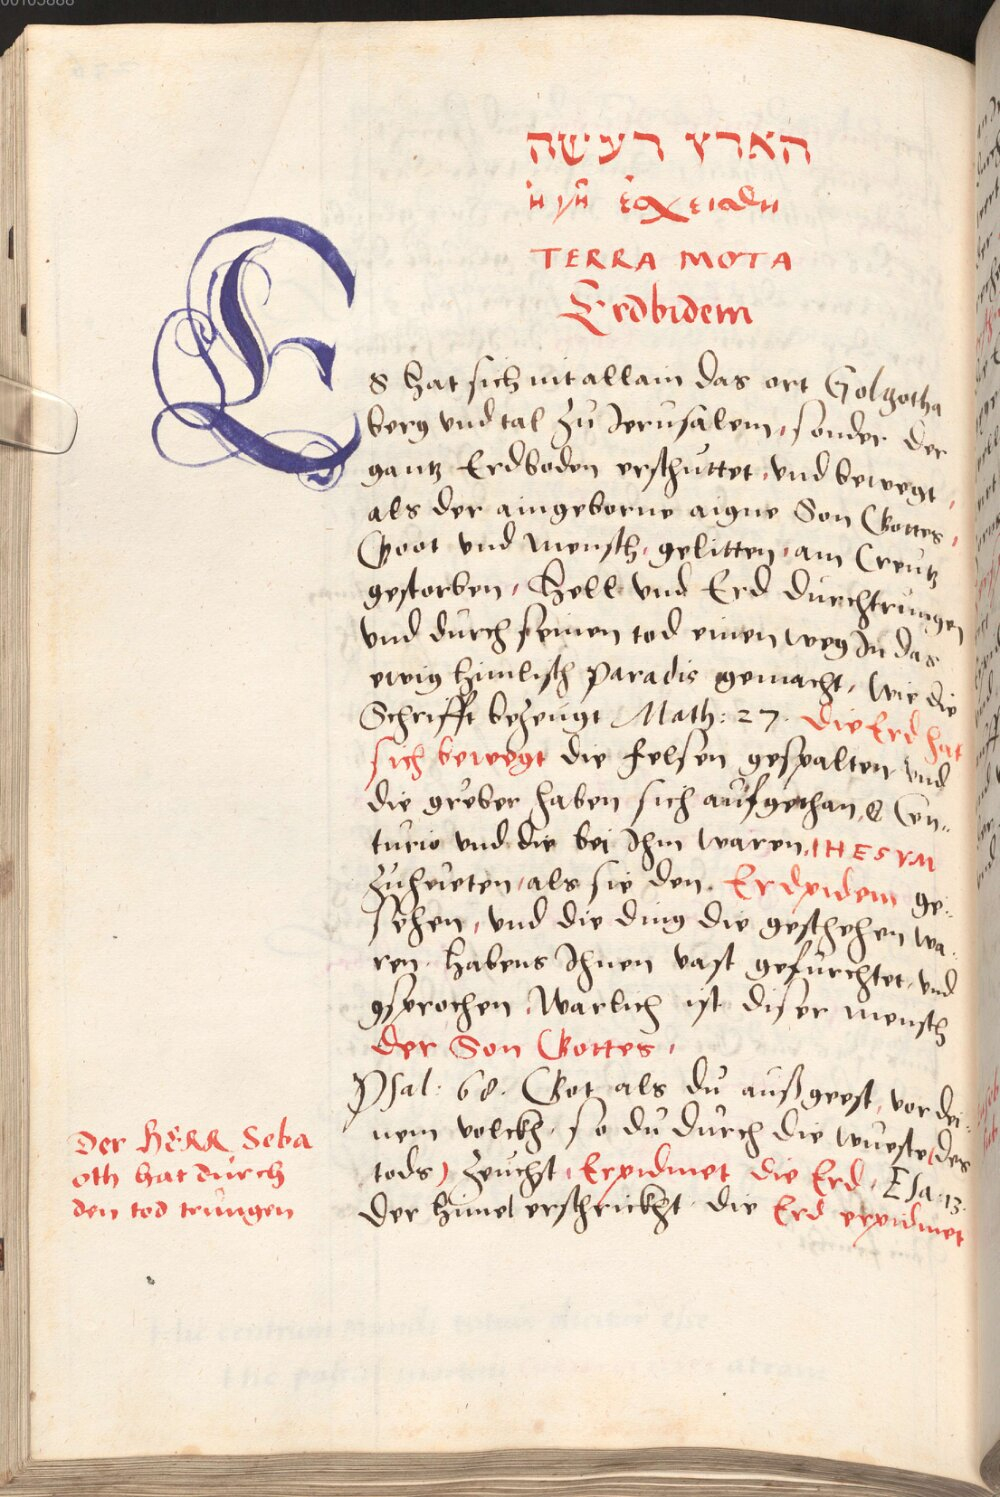 00103888
הארץ רעשה
ἡ γῆ ἐσχείσθη
TERRA MOTA
Erdbidem
Es hat sich nit allain das ort Golgotha
berg vnd tal zu Jerusalem, sonder der
gantz Erdboden erschüttet, vnd bewegt,
als der aingeborne aigne Son Gottes,
Goot vnd Mensch, gelitten, am Creutz
gestorben, Hell vnd Erd durchtrungen
vnd durch seinen tod einen weg In das
ewig himlisch Paradis gemacht, Wie die
Schrifft bezeugt Math: 27. Die Erd hat
sich bewegt die felsen gespalten, vnd
die greber haben sich aufgethan, & Cen=
turio vnd die bei Ihm waren, IHESVM
, als sie den Erdpidem ge=
sehen, vnd die ding die geschehen wa=
ren, habens Ihnen vast gefürchtet, vnd
gsprochen, Warlich ist diser mensch
der Son Gottes,
Psal: 68. Got als du außgeest, vor dei=
nem volckh, so du durch die wüeste (des
tods) zeuchst, Erpidmet die Erd, Esa: 13.
der himel erschrickht, die Erd erpidmet
Der HERR Seba
oth hat durch
den tod trungen